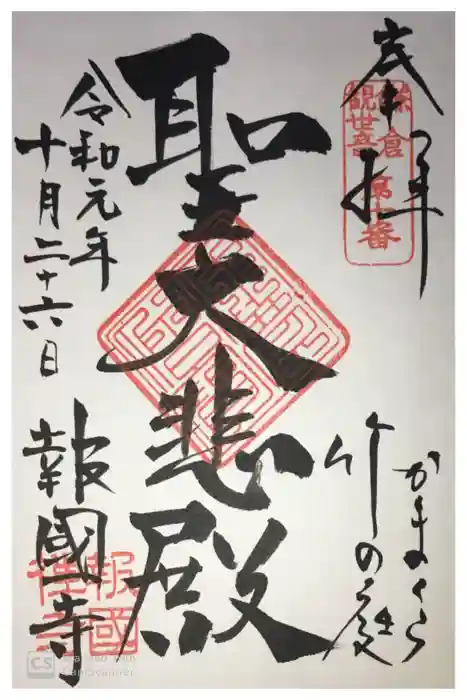 奉拝
鎌倉
観世音
第十番
かまくら
竹の庭
聖大悲殿
令和元年
十月二十六日
報國寺
報國
禅寺
CS